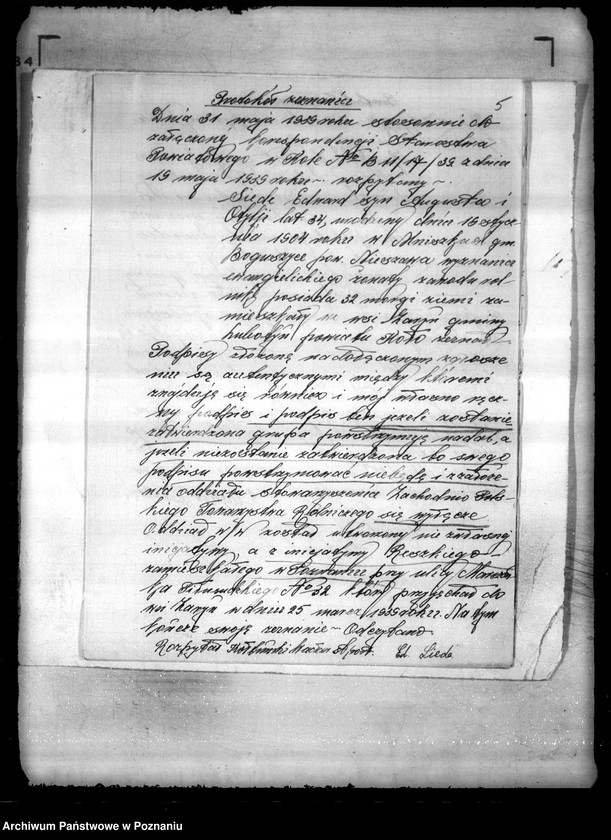 84
Protokół zeznania 5
Dnia 31 maja 1939 roku stosownie do
załączonej korespondencji Starostwa
Powiatowego w Kole No B 11/17/39 z dnia
19 maja 1939 roku - rozpytany -
Liede Edward syn Augusta i
Otylji lat 34, urodzony dnia 15 stycz-
nia 1904 roku w gm
Boguszyce pow. Nieszawa wyznania
ewangielickiego żonaty zawodu rol-
nik, posiada 32 morgi ziemi za-
mieszkały w wsi Zaryń gminy
Lubotyń powiatu Koło zeznał
Podpisy złożone na dołączonym
są autentycznymi między któremi
znajduję się również i mój własno ręcz-
ny podpis i podpis ten jeżeli zostanie
zatwierdzona grupa podtrzymuję nadal, a
jeżeli niezostanie zatwierdzona to swego
podpisu podtrzymować niebędę i z założe-
nia oddziału stowarzyszenia Zachodnio Pols-
kiego Towarzystwa Rolniczego się wyłączę
Oddział w/w został utworzony nie z własnej
inicjatywy, a z inicjatywy Reszkiego
zamieszkałego w Poznaniu przy ulicy Marszał-
ka Piłsudskiego No 32 który przyjechał do
wsi Zaryń w dniu 25 marca 1939 roku. Na tym
kończę swoje zeznanie - Odczytano -
Rozpytał Ed. Liede
Archiwum Państwowe w Poznaniu